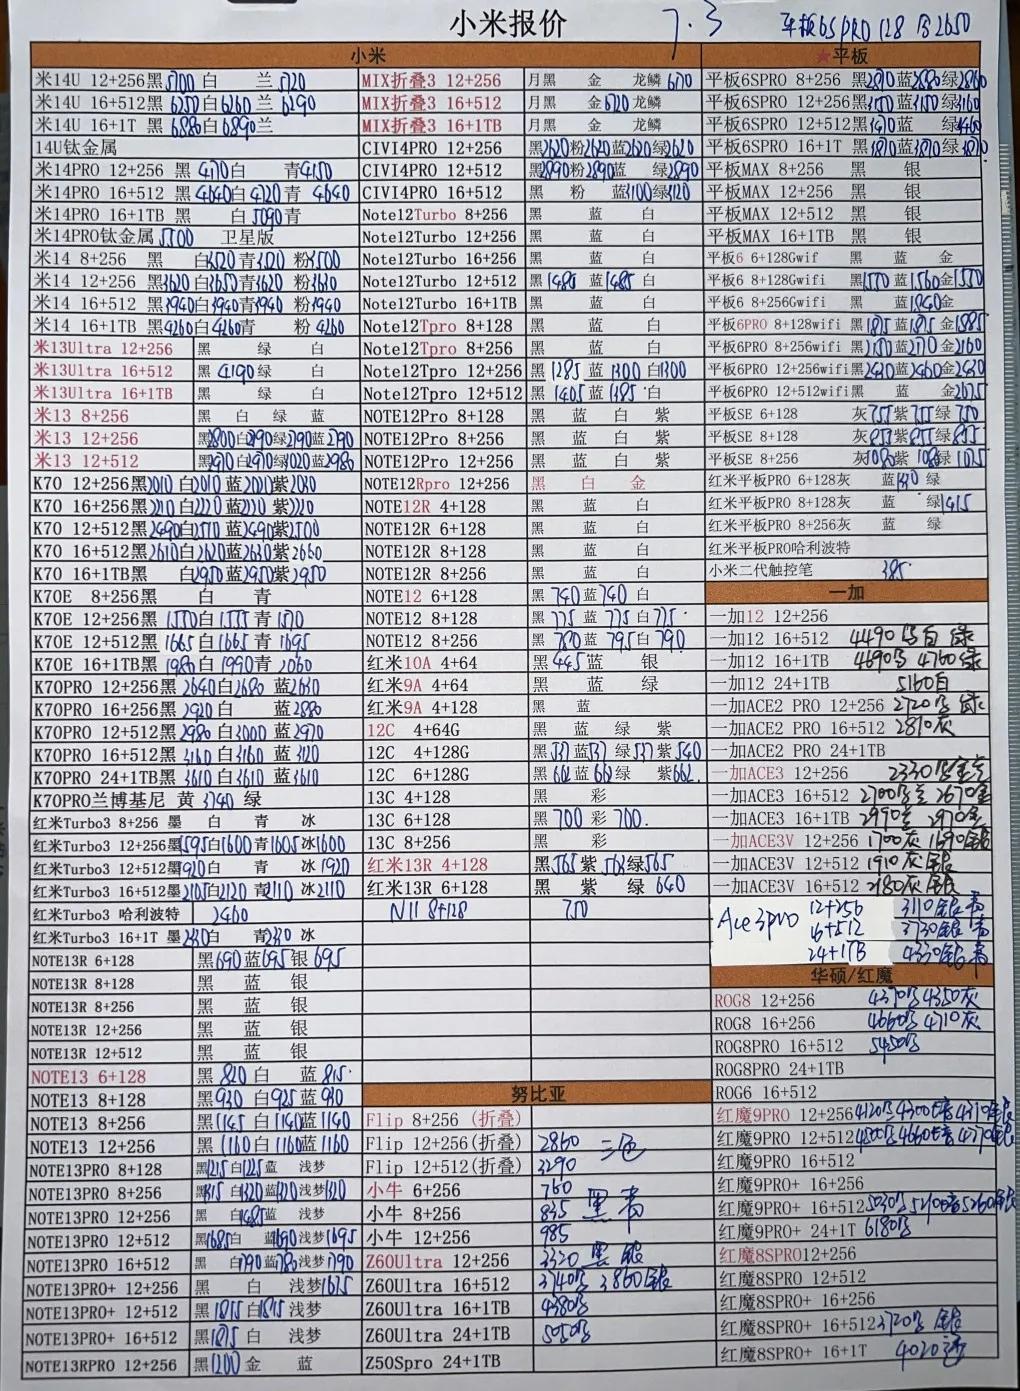 小米报价
7.3
平板6SPRO 128 2650
小米
米14U 12+256黑5700 白 兰5720
米14U 16+512黑6250白6260兰6290
米14U 16+1T 黑6880白6890兰
14U钛金属
米14PRO 12+256 黑4170白 青4150
米14PRO 16+512 黑4640白4720青 4640
米14PRO 16+1TB 黑 白5090青
米14PRO钛金属5500 卫星版
米14 8+256 黑 白 青 粉
米14 12+256 黑3620白3650青3620 粉3630
米14 16+512 黑3940白3940青3940 粉3940
米14 16+1TB 黑4260白4260青 粉4260
米13Ultra 12+256 黑 绿 白
米13Ultra 16+512 黑4190绿 白
米13Ultra 16+1TB 黑 绿 白
米13 8+256 黑 白 绿 蓝
米13 12+256 黑2800白2790绿2790蓝2790
米13 12+512 黑2970白2970绿3020蓝2980
K70 12+256黑2010白2010蓝2020紫2030
K70 16+256黑2210白2220蓝2210紫2220
K70 12+512黑2490白2510蓝2490紫2500
K70 16+512黑2610白2620蓝2630紫2660
K70 16+1TB黑 白2950蓝2950紫2950
K70E 8+256黑 白 青
K70E 12+256黑1550白1555青1570
K70E 12+512黑1665白1665青1695
K70E 16+1TB黑1980白1990青2060
K70PRO 12+256黑2640白2680蓝2630
K70PRO 16+256黑2920白 蓝2880
K70PRO 12+512黑2980白3000蓝2970
K70PRO 16+512黑3160白3160蓝3120
K70PRO 24+1TB黑3610白3610蓝3610
K70PRO兰博基尼 黄3740绿
红米Turbo3 8+256 墨 白 青 冰
红米Turbo3 12+256墨1595白1600青1605冰1600
红米Turbo3 12+512墨1920白 青 冰1920
红米Turbo3 16+512墨2105白2120青2110冰2110
红米Turbo3 哈利波特 2460
红米Turbo3 16+1T 墨2330白 青2330冰
NOTE13R 6+128 黑690蓝695银695
NOTE13R 8+128 黑 蓝 银
NOTE13R 8+256 黑 蓝 银
NOTE13R 12+256 黑 蓝 银
NOTE13R 12+512 黑 蓝 银
NOTE13 6+128 黑820白 蓝815
NOTE13 8+128 黑930白925蓝930
NOTE13 8+256 黑1145白1140蓝1140
NOTE13 12+256 黑1160白1160蓝1160
NOTE13PRO 8+128 黑1215白1225蓝 浅梦
NOTE13PRO 8+256 黑1315白1320蓝1320浅梦1320
NOTE13PRO 12+256 黑 白1485蓝 浅梦
NOTE13PRO 12+512 黑1685白 蓝1690浅梦1695
NOTE13PRO 16+512 黑 白1790蓝1780浅梦1790
NOTE13PRO+ 12+256 黑 白 浅梦1625
NOTE13PRO+ 12+512 黑1815白1815浅梦
NOTE13PRO+ 16+512 黑1875白 浅梦
NOTE13RPRO 12+256 黑1200金 蓝
MIX折叠3 12+256 月黑 金 龙鳞6170
MIX折叠3 16+512 月黑 金6720龙鳞
MIX折叠3 16+1TB 月黑 金 龙鳞
CIVI4PRO 12+256 黑2620粉2620蓝2620绿2620
CIVI4PRO 12+512 黑2890粉2890蓝 绿2890
CIVI4PRO 16+512 黑 粉 蓝3100绿3120
Note12Turbo 8+256 黑 蓝 白
Note12Turbo 12+256 黑 蓝 白
Note12Turbo 16+256 黑 蓝 白
Note12Turbo 12+512 黑1480蓝1485白
Note12Turbo 16+1TB 黑 蓝 白
Note12Tpro 8+128 黑 蓝 白
Note12Tpro 8+256 黑 蓝 白
Note12Tpro 12+256 黑1285蓝1300白1300
Note12Tpro 12+512 黑1405蓝1385白
NOTE12Pro 8+128 黑 蓝 白 紫
NOTE12Pro 8+256 黑 蓝 白 紫
NOTE12Pro 12+256 黑 蓝 白 紫
NOTE12Rpro 12+256 黑 白 金
NOTE12R 4+128 黑 蓝 白
NOTE12R 6+128 黑 蓝 白
NOTE12R 8+128 黑 蓝 白
NOTE12R 8+256 黑 蓝 白
NOTE12 6+128 黑740蓝740白
NOTE12 8+128 黑775蓝775白775
NOTE12 8+256 黑780蓝795白790
红米10A 4+64 黑445蓝 银
红米9A 4+64 黑 蓝 绿
红米9A 4+128 黑 蓝
12C 4+64G 黑 蓝 绿 紫
12C 4+128G 黑537蓝537绿537紫540
12C 6+128G 黑662蓝662绿 紫662
13C 4+128 黑 彩
13C 6+128 黑700彩700
13C 8+256 黑 彩
红米13R 4+128 黑565紫565绿565
红米13R 6+128 黑 紫 绿640
N11 8+128 750
努比亚
Flip 8+256 (折叠)
Flip 12+256(折叠) 2860 三色
Flip 12+512(折叠) 3290
小牛 6+256 760
小牛 8+256 835 黑 青
小牛 12+256 985
Z60Ultra 12+256 3330 黑 银
Z60Ultra 16+512 3740 3860银
Z60Ultra 16+1TB 4380
Z60Ultra 24+1TB 5050
Z50Spro 24+1TB
★平板
平板6SPRO 8+256 黑2870蓝2880绿2860
平板6SPRO 12+256黑3150蓝3150绿3160
平板6SPRO 12+512黑3470蓝 绿3460
平板6SPRO 16+1T 黑3870蓝3870绿3870
平板MAX 8+256 黑 银
平板MAX 12+256 黑 银
平板MAX 12+512 黑 银
平板MAX 16+1TB 黑 银
平板6 6+128Gwif 黑 蓝 金
平板6 8+128Gwifi 黑1550蓝1560金1550
平板6 8+256Gwifi 黑 蓝1840金
平板6PRO 8+128wifi 黑1875蓝1875金1885
平板6PRO 8+256wifi 黑2150蓝2170金2160
平板6PRO 12+256wifi黑2430蓝2460金2430
平板6PRO 12+512wifi黑 蓝 金2675
平板SE 6+128 灰755紫755绿750
平板SE 8+128 灰855紫855绿855
平板SE 8+256 灰1080紫1080绿1075
红米平板PRO 6+128灰 蓝 绿
红米平板PRO 8+128灰 蓝 绿1415
红米平板PRO 8+256灰 蓝 绿
红米平板PRO哈利波特
小米二代触控笔 385
一加
一加12 12+256
一加12 16+512 4490 白 绿
一加12 16+1TB 4690 4760绿
一加12 24+1TB 5160白
一加ACE2 PRO 12+256 2720 绿
一加ACE2 PRO 16+512 2810灰
一加ACE2 PRO 24+1TB
一加ACE3 12+256 2330
一加ACE3 16+512 2700 2670金
一加ACE3 16+1TB 2990 2970金
一加ACE3V 12+256 1700灰 1690银
一加ACE3V 12+512 1910灰银
一加ACE3V 16+512 2180灰银
Ace3pro 12+256 3110银青
16+512 3730银青
24+1TB 4330银青
华硕/红魔
ROG8 12+256 4370 4350灰
ROG8 16+256 4660 4710灰
ROG8PRO 16+512 5450
ROG8PRO 24+1TB
ROG6 16+512
红魔9PRO 12+256
红魔9PRO 12+512
红魔9PRO 16+512
红魔9PRO+ 16+256
红魔9PRO+ 16+512
红魔9PRO+ 24+1T 6180
红魔8SPRO12+256
红魔8SPRO 12+512
红魔8SPRO+ 16+256
红魔8SPRO+ 16+512 3720 银
红魔8SPRO+ 16+1T 4020透